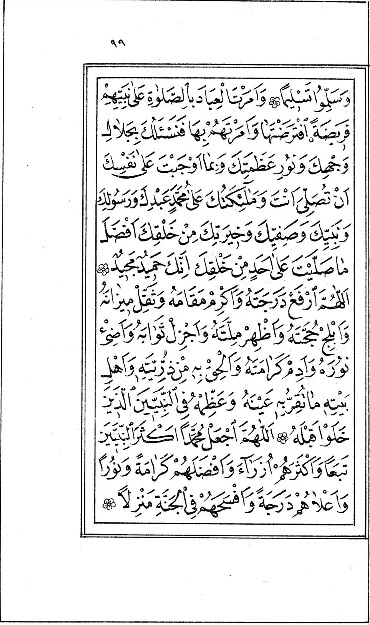 ٩٩
وَسَلِّمُوا تَسْلِيمًا ۞ وَاَمَرْتَ الْعِبَادَ بِالصَّلٰوةِ عَلٰى نَبِيِّهِمْ
فَرِيضَةً اِفْتَرَضْتَهَا وَاَمَرْتَهُمْ بِهَا فَنَسْئَلُكَ بِجَلَالِ
وَجْهِكَ وَنُورِ عَظَمَتِكَ وَبِمَا اَوْجَبْتَ عَلٰى نَفْسِكَ
اَنْ تُصَلِّيَ اَنْتَ وَمَلٰئِكَتُكَ عَلٰى مُحَمَّدٍ عَبْدِكَ وَرَسُولِكَ
وَنَبِيِّكَ وَصَفِيِّكَ وَخِيَرَتِكَ مِنْ خَلْقِكَ اَفْضَلَ
مَا صَلَّيْتَ عَلٰى اَحَدٍ مِنْ خَلْقِكَ اِنَّكَ حَمِيدٌ مَجِيدٌ ۞
اَللّٰهُمَّ ارْفَعْ دَرَجَتَهُ وَاَكْرِمْ مَقَامَهُ وَثَقِّلْ مِيزَانَهُ
وَاَبْلِجْ حُجَّتَهُ وَاَظْهِرْ مِلَّتَهُ وَاَجْزِلْ ثَوَابَهُ وَاَضِئْ
نُورَهُ وَاَدِمْ كَرَامَتَهُ وَاَلْحِقْ بِهِ مِنْ ذُرِّيَّتِهِ وَاَهْلِ
بَيْتِهِ مَا تُقِرُّ بِهِ عَيْنَهُ وَعَظِّمْهُ فِي النَّبِيِّينَ الَّذِينَ
خَلَوْا قَبْلَهُ ۞ اَللّٰهُمَّ اجْعَلْ مُحَمَّدًا اَكْثَرَ النَّبِيِّينَ
تَبَعًا وَاَكْثَرَهُمْ اُزَرَآءَ وَاَفْضَلَهُمْ كَرَامَةً وَنُورًا
وَاَعْلَاهُمْ دَرَجَةً وَاَفْسَحَهُمْ فِي الْجَنَّةِ مَنْزِلًا ۞